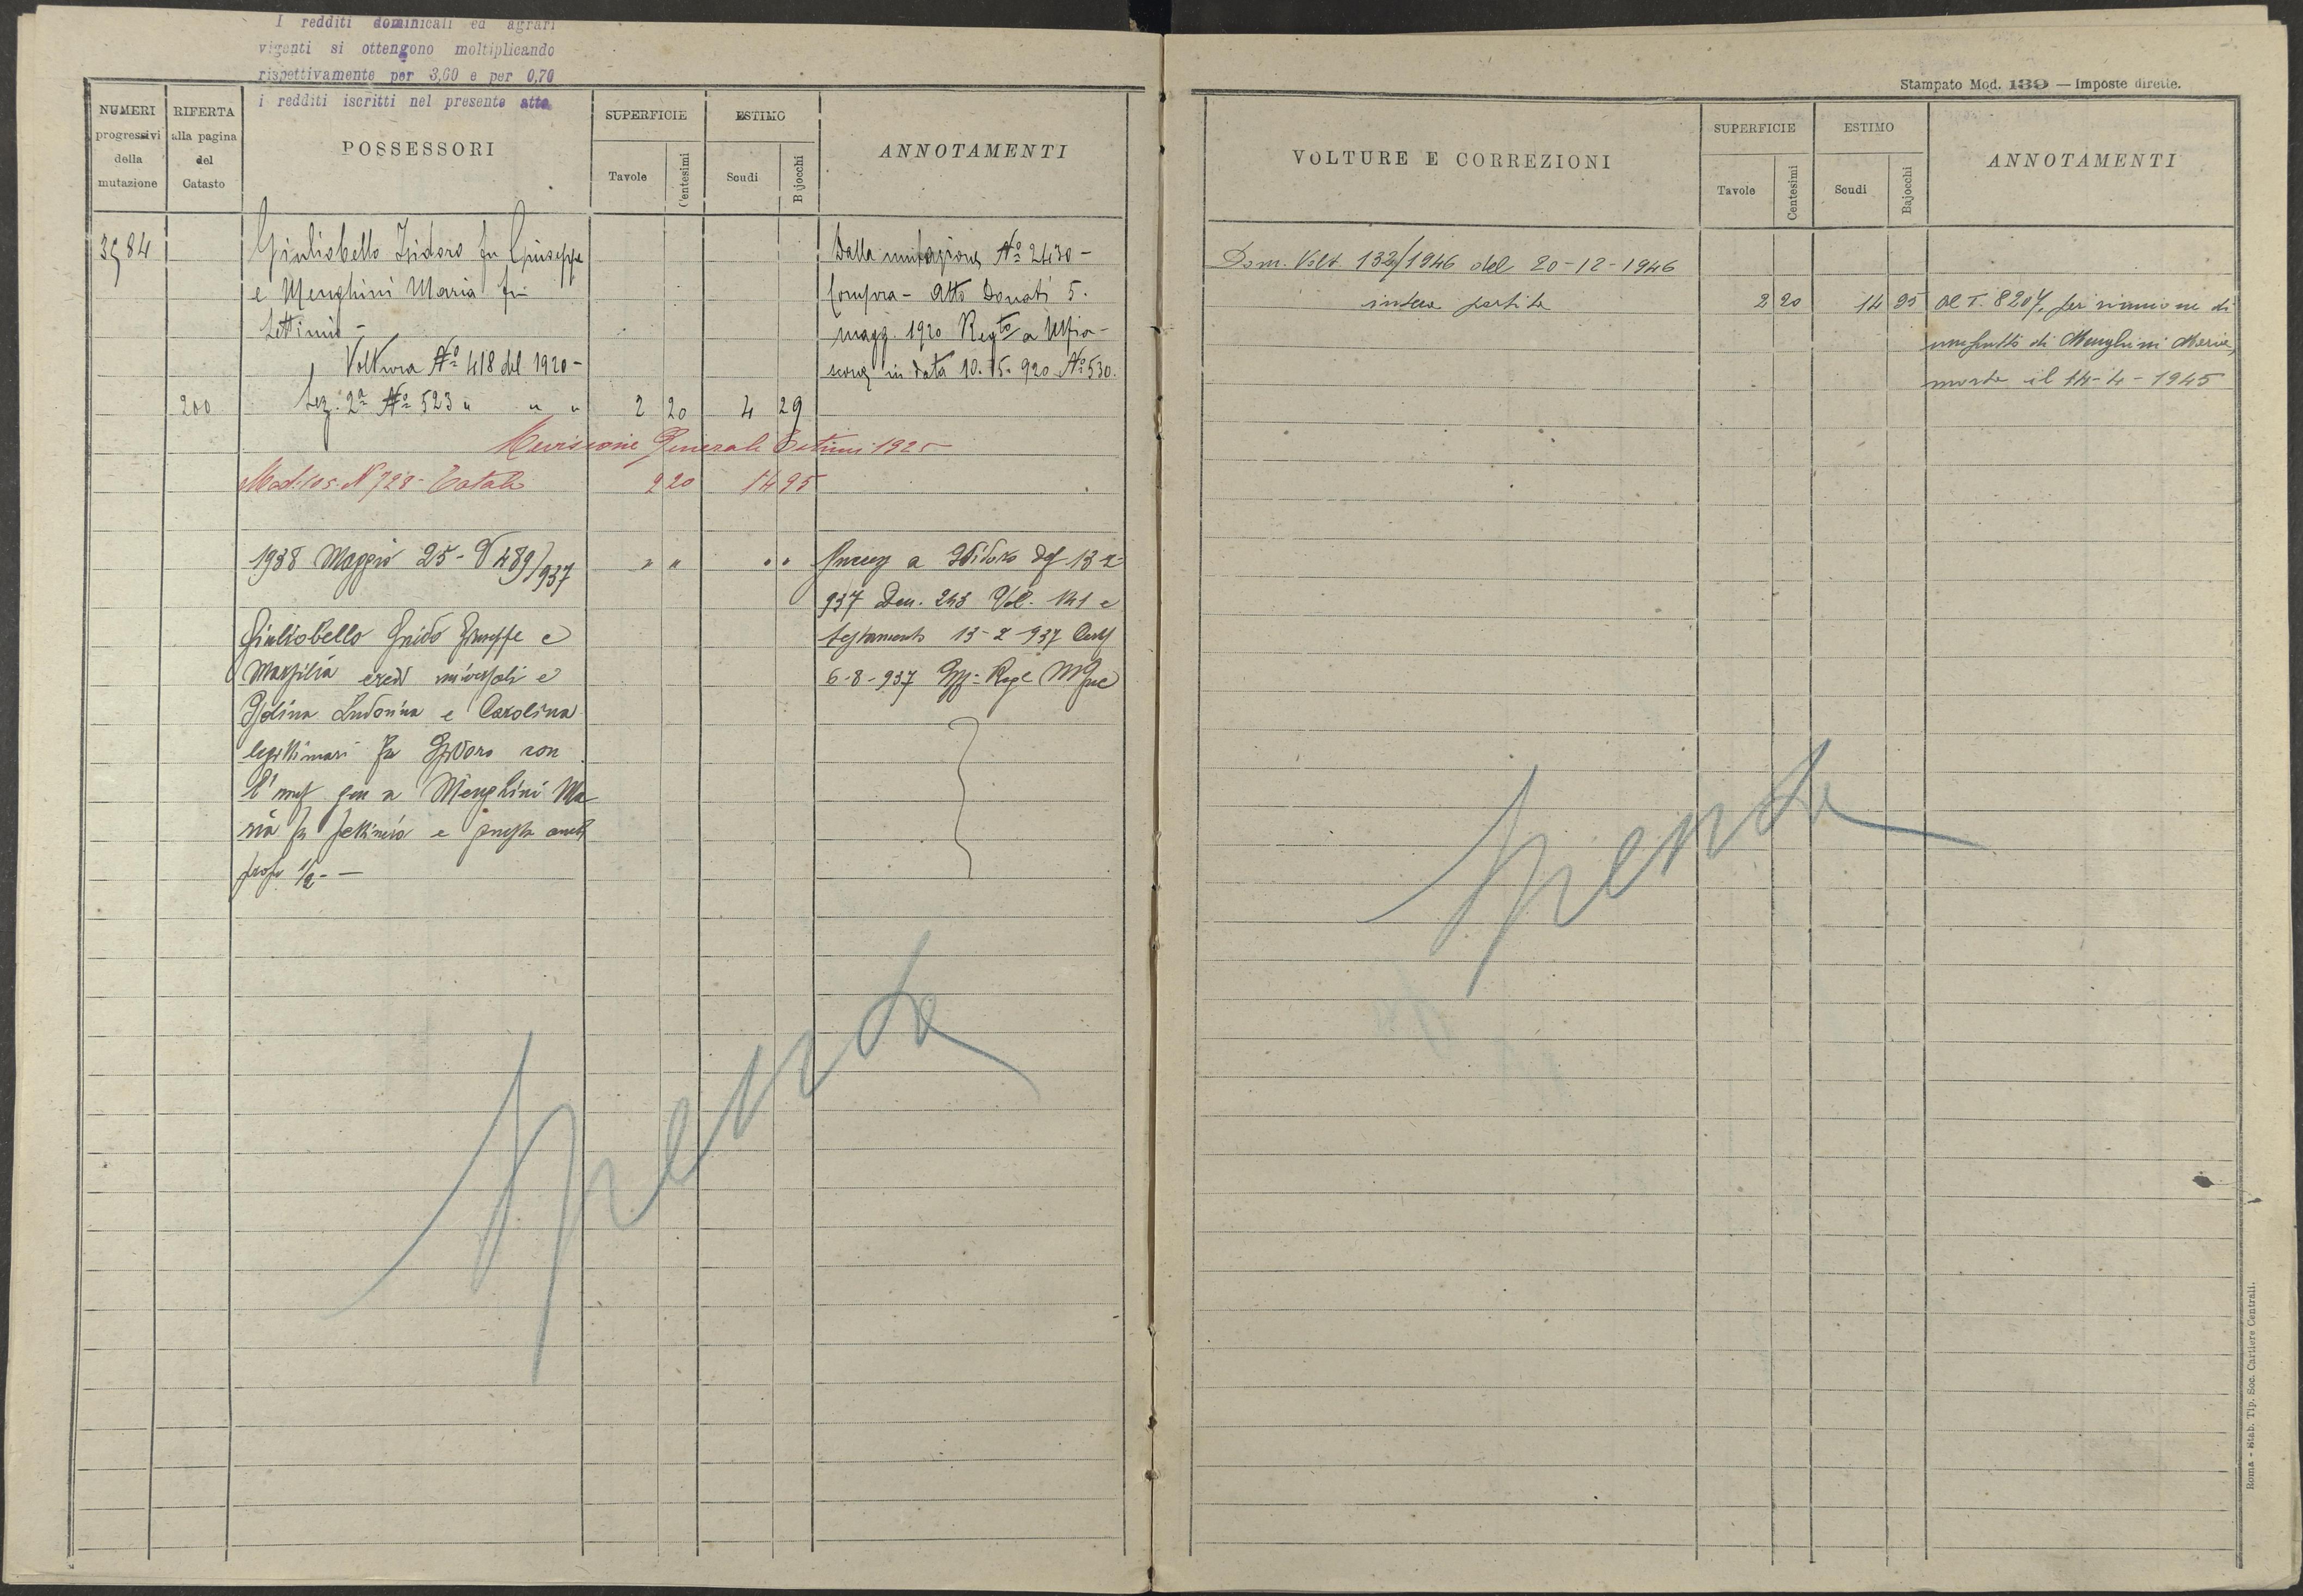 I redditi dominicali ed agrari
vigenti si ottengono moltiplicando
rispettivamente per 3,60 e per 0,70
i redditi iscritti nel presente atto.
NUMERI progressivi della mutazione
RIFERTA alla pagina del Catasto
POSSESSORI
SUPERFICIE
Tavole
Centesimi
ESTIMO
Scudi
Bajocchi
ANNOTAMENTI
3584 Giuliobello Isidoro fu Giuseppe Dalla mutazione Nº 2430 -
e Menghini Maria fu Compra - Atto Donati 5.
Settimio - magg. 1920 Regto a
Voltura Nº 418 del 1920 - in data 10.15.920 Nº 530.
200 Sez. 2ª Nº 523 " " " 2 20 4 29
Revisione Generale Estimi 1925
Mod. 105. N 728 - Totale 2 20 14 95
1938 Maggio 25 - V 489/937 " " " " a Isidoro 13-2-
937 Den. 243 Vol. 141 e
Giuliobello Guido Giuseppe e testamento 13-2-937
Marsilia eredi universali e 6-8-937
e Carolina
legittimari fu Isidoro con
l'usuf a Menghini Ma
ria fu Settimio e
1/2 - —
Spenta
Stampato Mod. 139 — Imposte dirette.
VOLTURE E CORREZIONI
SUPERFICIE
Tavole
Centesimi
ESTIMO
Scudi
Bajocchi
ANNOTAMENTI
Dom. Volt. 132/1946 del 20-12-1946
intera partita 2 20 14 95 Al T. 8207, per riunione di
usufrutto di Menghini Maria,
morta il 14-4-1945
Spenta
Roma - Stab. Tip. Soc. Cartiere Centrali.